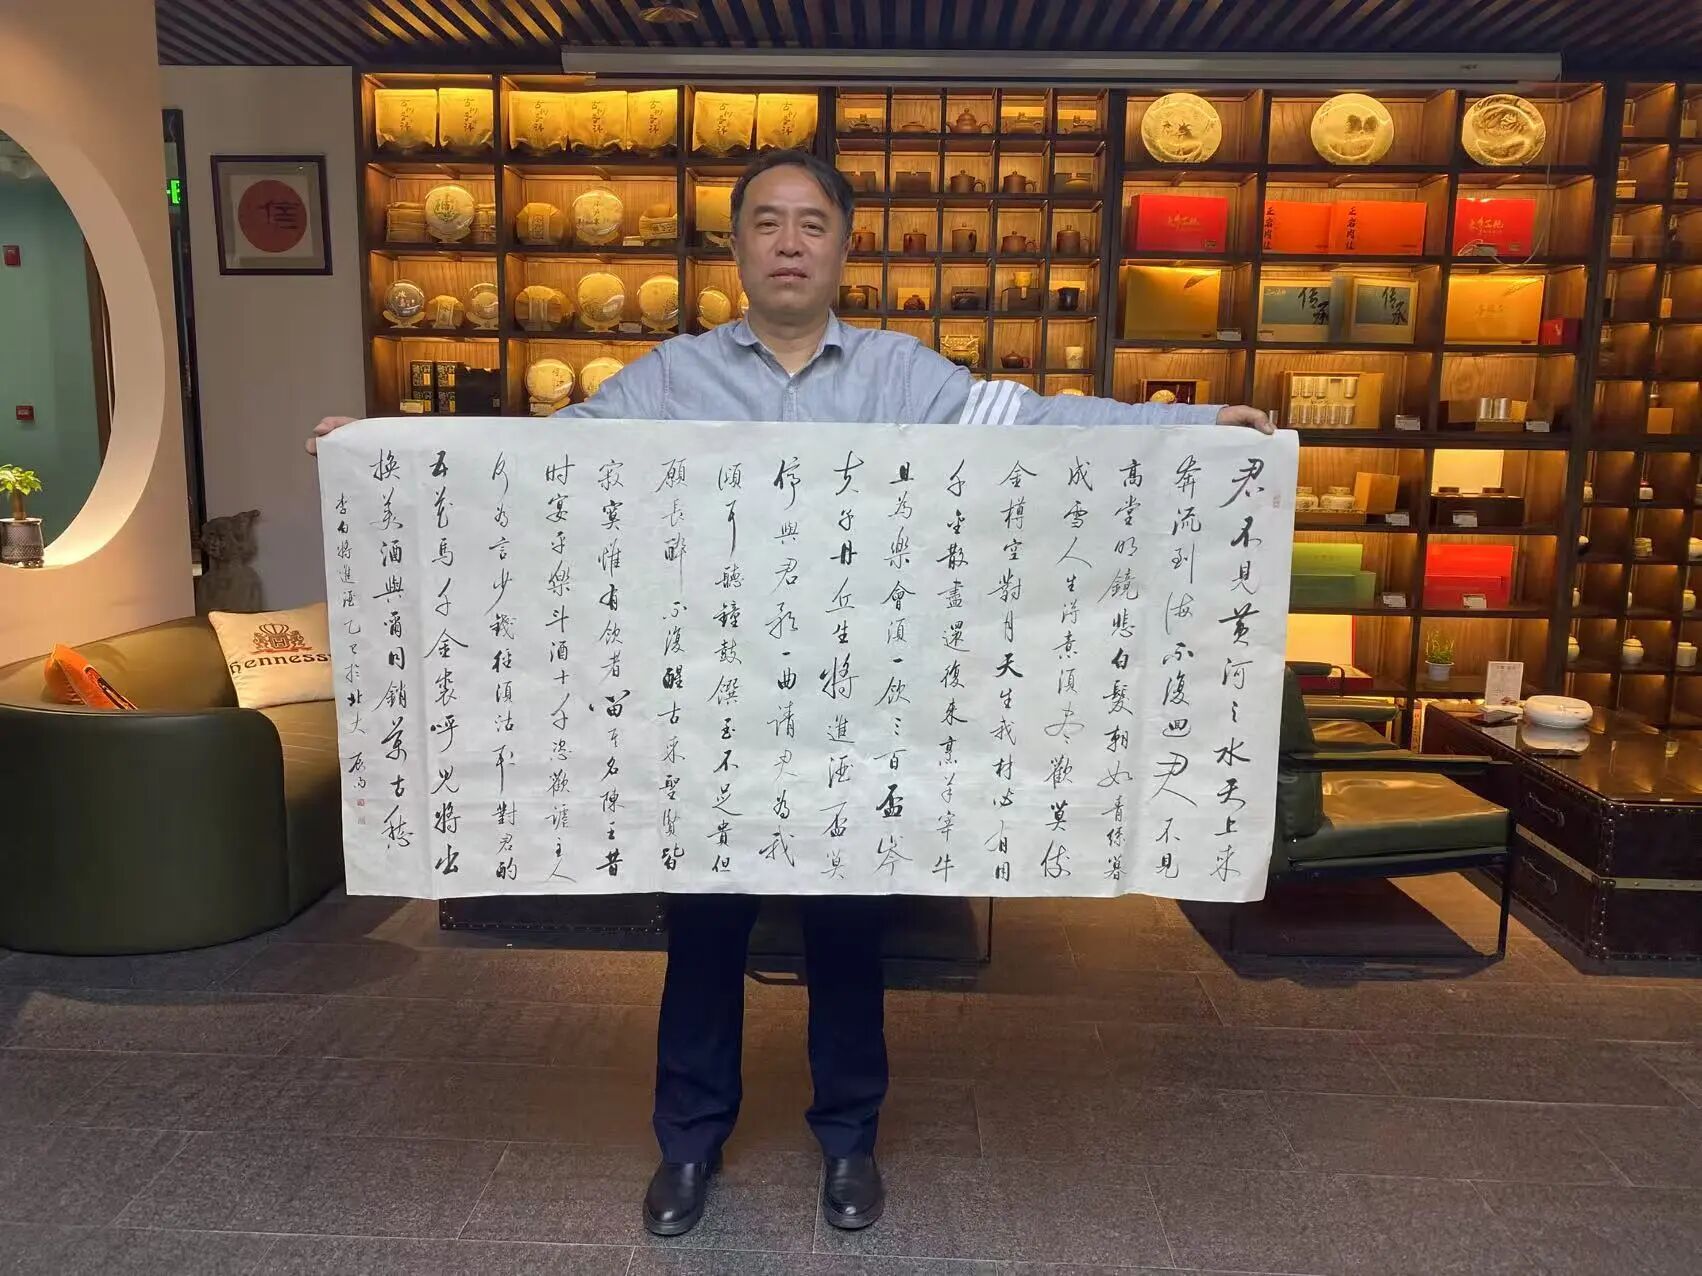 君不見黄河之水天上來
奔流到海不復回君不見
高堂明鏡悲白髮朝如青絲暮
成雪人生得意須盡歡莫使
金樽空對月天生我材必有用
千金散盡還復來烹羊宰牛
且為樂會須一飲三百盃岑
夫子丹丘生將進酒盃莫
停與君歌一曲请君為我
傾耳聽鐘鼓饌玉不足貴但
願長醉不復醒古來聖賢皆
寂寞惟有飲者留其名陳王昔
时宴平樂斗酒十千恣歡謔主人
何為言少錢徑須沽取對君酌
五花馬千金裘呼兒將出
換美酒與爾同銷萬古愁
李白將進酒乙巳於北大
信
Hennessy
传承
传承